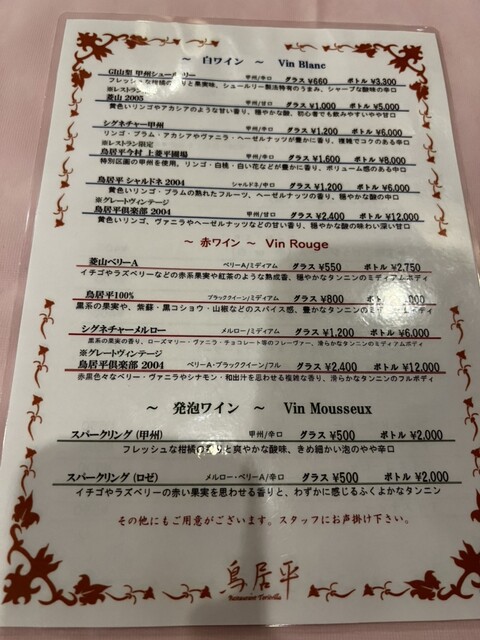 ～ 白ワイン ～ Vin Blanc
GI山梨 甲州シュールリー 甲州/辛口 グラス ¥660 ボトル ¥3,300
フレッシュな柑橘の香りと果実味、シュールリー製法特有のうまみ、シャープな酸味の辛口
※レストラン限定
菱山 2003 甲州/甘口 グラス ¥1,000 ボトル ¥5,000
黄色いリンゴやアカシアのような甘い香り、穏やかな酸、初心者でも飲みやすいやや甘口
シグネチャー甲州 甲州/辛口 グラス ¥1,200 ボトル ¥6,000
リンゴ・プラム・アカシアやヴァニラ・ヘーゼルナッツが豊かに香り、複雑でコクのある辛口
※レストラン限定
鳥居平今村 上菱平圃場 甲州/辛口 グラス ¥1,600 ボトル ¥8,000
特別区画の甲州を使用。リンゴ・白桃・白い花などが豊かに香り、ボリューム感のある中口
鳥居平 シャルドネ 2004 シャルドネ/辛口 グラス ¥1,200 ボトル ¥6,000
黄色いリンゴ・プラムの熟れたフルーツ、ヘーゼルナッツの香り、穏やかな酸の中口
※グレートヴィンテージ
鳥居平倶楽部 2004 甲州/甘口 グラス ¥2,400 ボトル ¥12,000
黄色いリンゴ、ヴァニラやヘーゼルナッツなどの甘い香り、穏やかな酸の味わい深い甘口
～ 赤ワイン ～ Vin Rouge
菱山ベリーA ベリーA/ミディアム グラス ¥550 ボトル ¥2,750
イチゴやラズベリーなどの赤系果実や紅茶のような熟成香、穏やかなタンニンのミディアムボディ
鳥居平100% ブラッククイーン/ミディアム グラス ¥800 ボトル 000
黒系の果実や、紫蘇・黒コショウ・山椒などのスパイス感、豊かなタンニンのミディアムボディ
シグネチャーメルロー メルロー/ミディアム グラス ¥1,200 ボトル ¥6,000
黒系果実の果実の香り、ローズマリー・ヴァニラ・チョコレート等のフレーヴァー、滑らかなタンニンのミディアムボディ
※グレートヴィンテージ
鳥居平倶楽部 2004 ベリーA・ブラッククイーン/フル グラス ¥2,400 ボトル ¥12,000
赤黒色々なベリー・ヴァニラやシナモン・和出汁を思わせる複雑な香り、滑らかなタンニンのフルボディ
～ 発泡ワイン ～ Vin Mousseux
スパークリング (甲州) 甲州/辛口 グラス ¥500 ボトル ¥2,000
フレッシュな柑橘の香りと爽やかな酸味、きめ細かい泡のやや辛口
スパークリング (ロゼ) メルロー・ベリーA/辛口 グラス ¥500 ボトル ¥2,000
イチゴやラズベリーの赤い果実を思わせる香りと、わずかに感じるふくよかなタンニン
その他にもご用意がございます。スタッフにお声掛け下さい。
鳥居平
Restaurant Toriivilla